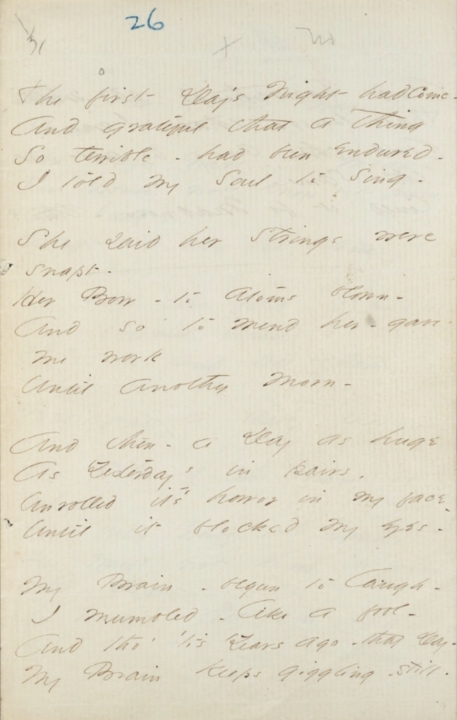 26
The first Day's Night had come -
And grateful that a thing
So terrible - had been endured -
I told my Soul to sing -
She said her Strings were
snapt -
Her Bow - to atoms blown -
And so to mend her - gave
me work
Until another Morn -
And then - a Day as huge
As Yesterdays in pairs,
Unrolled it's horror in my face -
Until it blocked my eyes -
My Brain - begun to laugh -
I mumbled - like a fool -
And tho' 'tis Years ago - that Day -
My Brain keeps giggling - still.